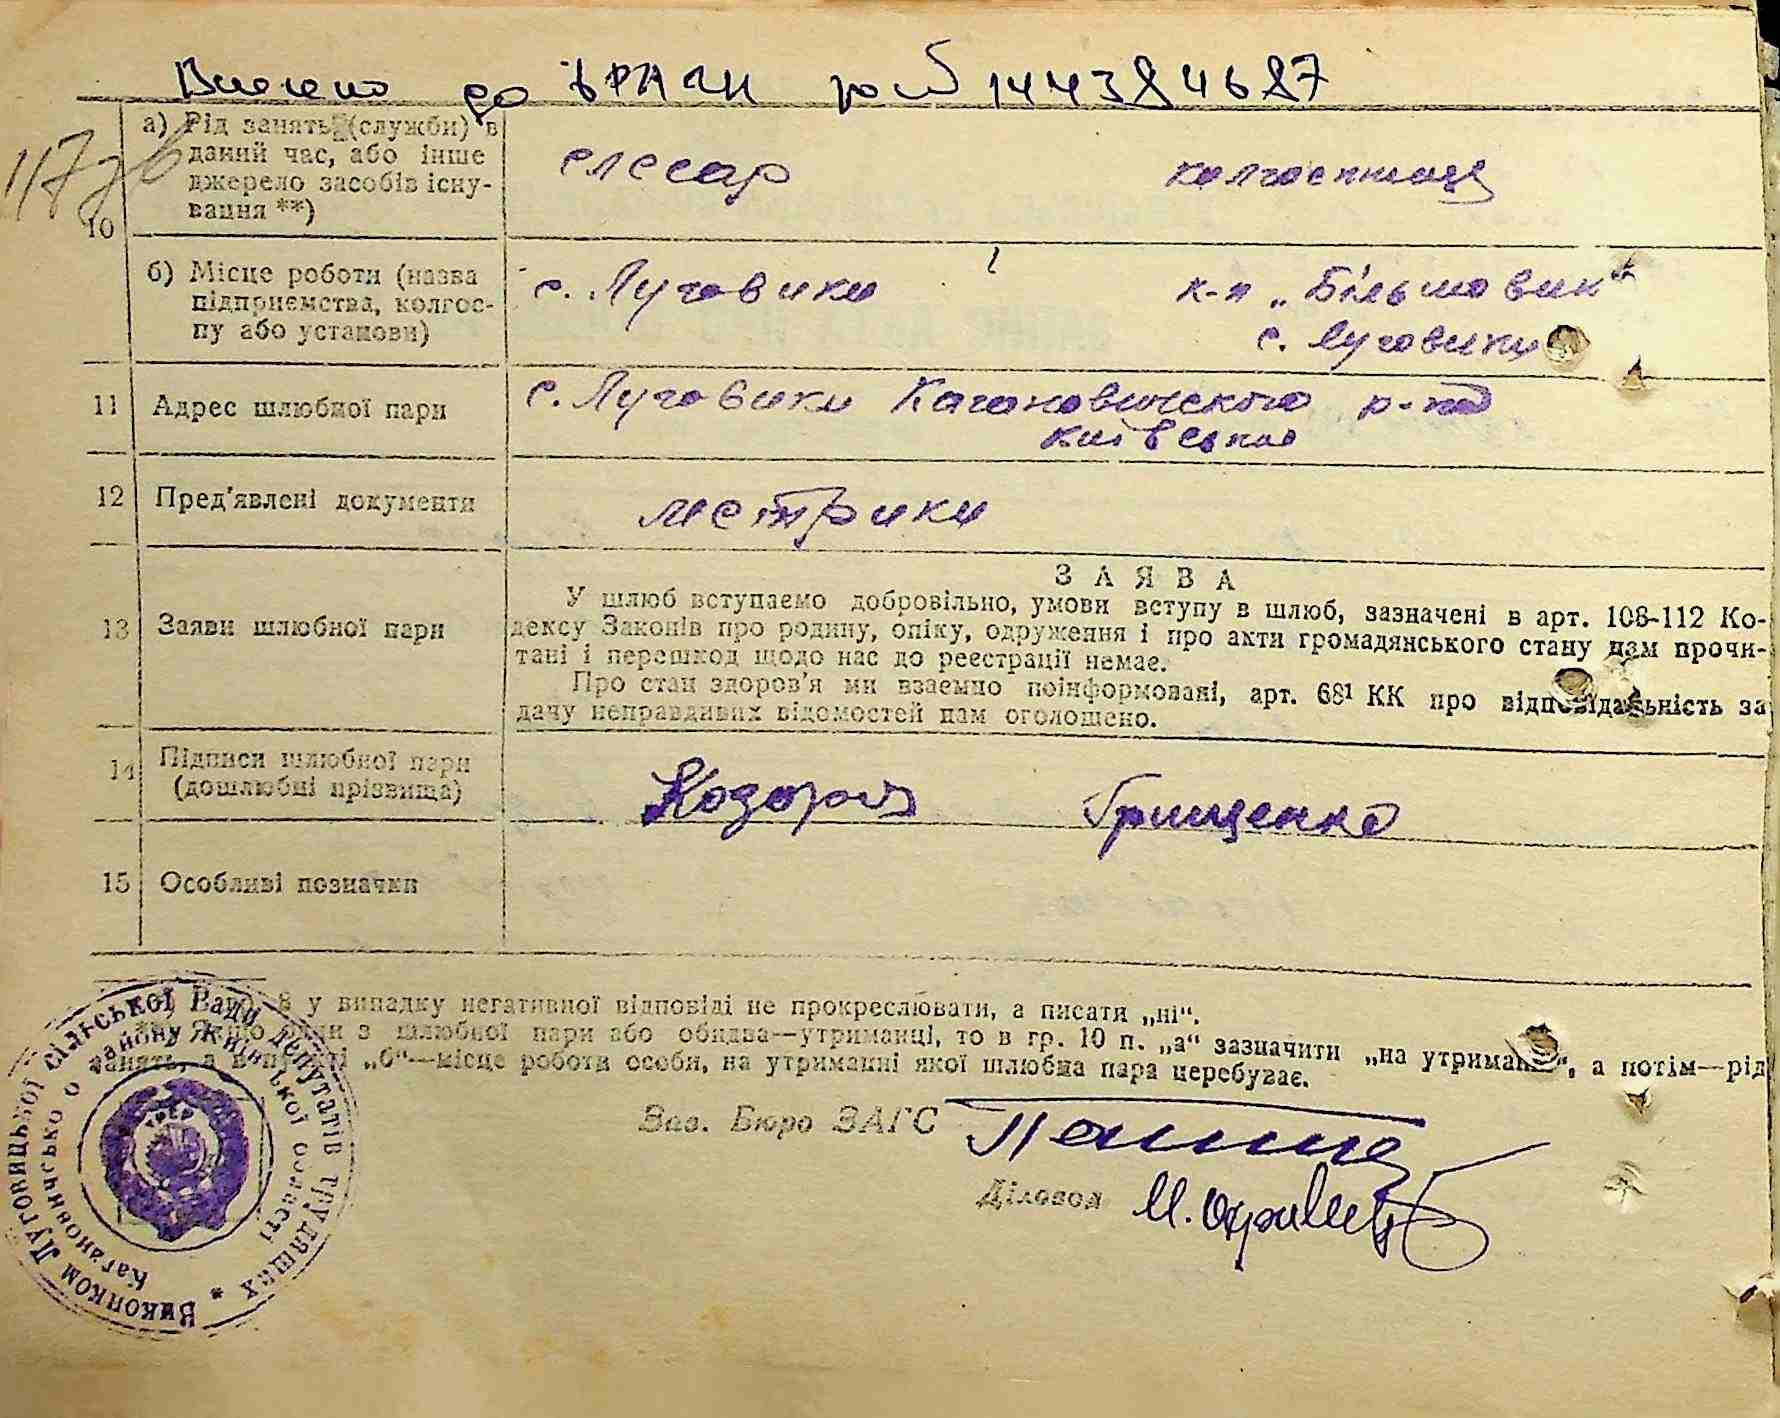 Внесено до ДРАЦСГ 144384687
117зв
10
а) Рід занять (служби) в даний час, або інше джерело засобів існування **)
слесар
колгоспниця
б) Місце роботи (назва підприємства, колгоспу або установи)
с. Луговики
к-п „Більшовик“
с. Луговики
11 Адрес шлюбної пари
с. Луговики Кагановичського р-ну
Київської
12 Пред'явлені документи
метрики
13 Заяви шлюбної пари
ЗАЯВА
У шлюб вступаємо добровільно, умови вступу в шлюб, зазначені в арт. 108-112 Ко-
дексу Законів про родину, опіку, одруження і про акти громадянського стану нам прочи-
тані і перешкод щодо нас до реєстрації немає.
Про стан здоров'я ми взаємно поінформовані, арт. 68¹ КК про відповідальність за
дачу неправдивих відомостей нам оголошено.
14 Підписи шлюбної пари
(дошлюбні прізвища)
Грищенко
15 Особливі позначки
8 у випадку негативної відповіді не прокреслювати, а писати „ні“.
з шлюбної пари або обидва—утриманці, то в гр. 10 п. „а“ зазначити „на утриманні“, а потім—рід
занять, а в пункті „б“—місце роботи особи, на утриманні якої шлюбна пара перебуває.
Зав. Бюро ЗАГС
Діловод
Виконком Луговицької сільської Ради депутатів трудящих *
Кагановичського району Київської області